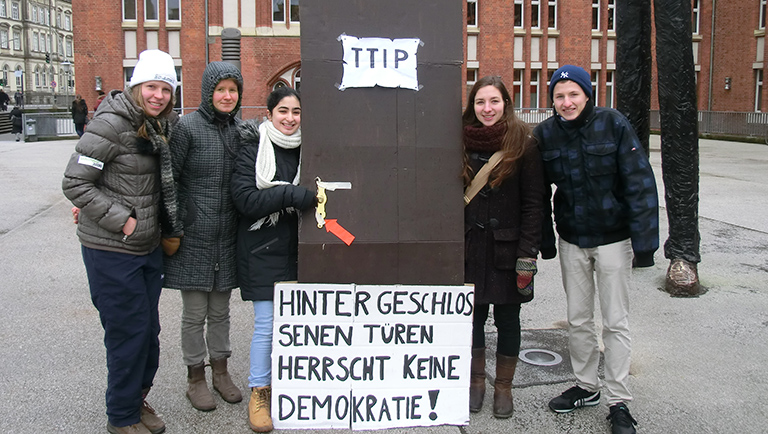 TTIP
HINTER GESCHLOS
SENEN TÜREN
HERRSCHT KEINE
DEMOKRATIE!